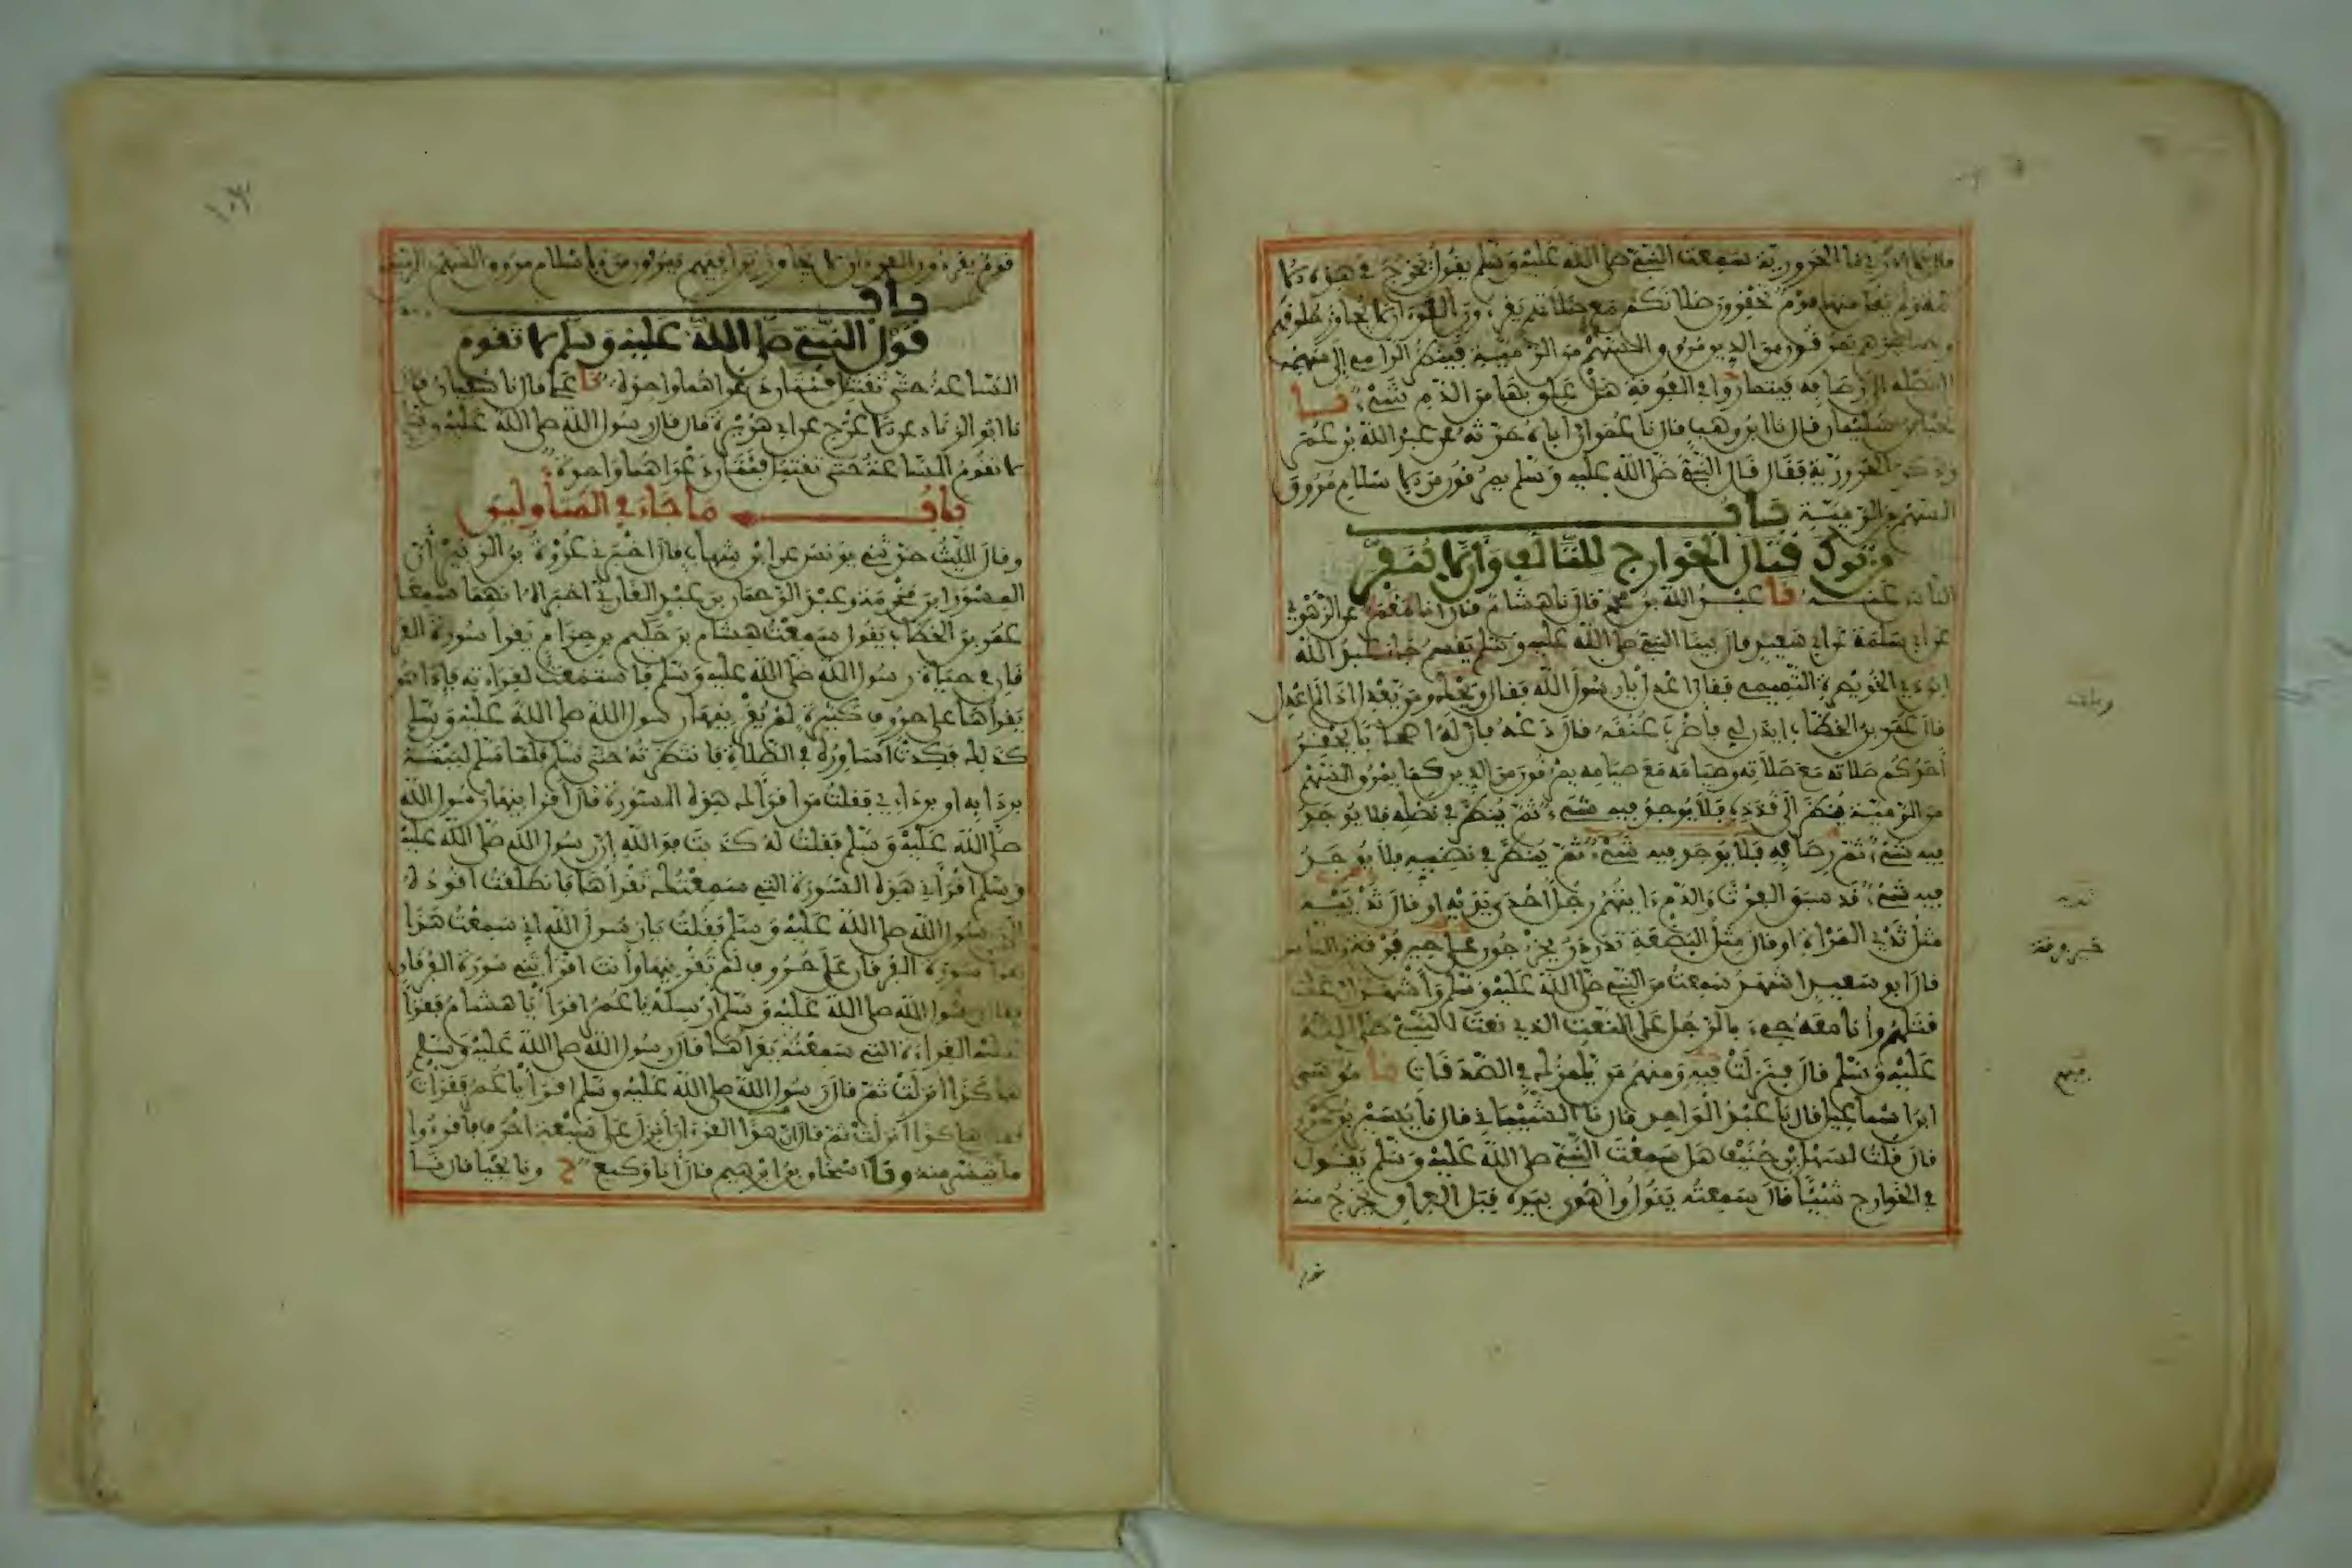 ما الحرورية سمعت النبي صلى الله عليه وسلم يقول يخرج في هذه الا
مة ولم يقل منها قوم تحقرون صلاتكم مع صلاتهم يقرءون القرءان لا يجاوز حلوقهم
يمرقون من الدين مروق السهم من الرمية فينظر الرامي إلى سهمه
إلى نصله إلى رصافه فيتمارى في الفوقة هل علق بها من الدم شيء نا
يحيى بن سليمان قال نا ابن وهب قال نا عمر ان اباه حدثه عن عبد الله بن عمر
وذكر الحرورية فقال قال النبي صلى الله عليه وسلم يمرقون من الاسلام مروق
السهم من الرمية باب
من ترك قتال الخوارج للتألف وان لا ينفر
الناس عنه نا عبد الله بن محمد قال نا هشام قال انا معمر عن الزهري
عن ابي سلمة عن ابي سعيد قال بينا النبي صلى الله عليه وسلم يقسم جاء عبد الله
ابن ذي الخويصرة التميمي فقال اعدل يا رسول الله فقال ويحك ومن يعدل اذا لم اعدل
قال عمر بن الخطاب ايذن لي فاضرب عنقه قال دعه فان له اصحابا يحقر
أحدكم صلاته مع صلاته وصيامه مع صيامه يمرقون من الدين كما يمرق السهم
من الرمية ينظر إلى قذذه فلا يوجد فيه شيء ثم ينظر في نصله فلا يوجد
فيه شيء ثم رصافه فلا يوجد فيه شيء ثم ينظر في نضيه فلا يوجد
فيه شيء قد سبق الفرث والدم ءايتهم رجل احدى يديه او قال ثدييه
مثل ثدي المرأة او قال مثل البضعة تدردر يخرجون على حين فرقة من الناس
قال ابو سعيد اشهد سمعت من النبي صلى الله عليه وسلم وأشهد ان عليا
قتلهم وأنا معه جيء بالرجل على النعت الذي نعت النبي صلى الله
عليه وسلم قال فنزلت فيه ومنهم من يلمزك في الصدقات نا موسى
ابن اسماعيل قال نا عبد الواحد قال نا الشيباني قال نا يسير بن عمرو
قال قلت لسهل بن حنيف هل سمعت النبي صلى الله عليه وسلم يقول
في الخوارج شيئا قال سمعته يقول وأهوى بيده قبل العراق يخرج منه
ثدييه
خير فرقة
فيهم
قوم يقرءون القرءان لا يجاوز تراقيهم يمرقون من الاسلام مروق السهم من الرمية
باب
قول النبي صلى الله عليه وسلم لا تقوم
الساعة حتى تقتتل فئتان دعواهما واحدة نا علي قال نا سفيان قال
نا ابو الزناد عن الاعرج عن ابي هريرة قال قال رسول الله صلى الله عليه وسلم
لا تقوم الساعة حتى تقتتل فئتان دعواهما واحدة
باب ما جاء في المتأولين
وقال الليث حدثني يونس عن ابن شهاب قال اخبرني عروة بن الزبير أن
المسور ابن مخرمة وعبد الرحمان بن عبد القاري اخبراه انهما سمعا
عمر بن الخطاب يقول سمعت هشام بن حكيم بن حزام يقرأ سورة الفر
قان في حياة رسول الله صلى الله عليه وسلم فاستمعت لقراءته فإذا هو
يقرأها على حروف كثيرة لم يقرئنيها رسول الله صلى الله عليه وسلم
كذلك فكدت أساوره في الصلاة فانتظرته حتى سلم فلما سلم لببته
بردائه او بردائي فقلت من اقرأك هذه السورة قال أقرأنيها رسول الله
صلى الله عليه وسلم فقلت له كذبت فوالله إن رسول الله صلى الله عليه
وسلم اقرأني هذه السورة التي سمعتك تقرأها فانطلقت اقوده
الى رسول الله صلى الله عليه وسلم فقلت يا رسول الله اني سمعت هذا
يقرأ سورة الفرقان على حروف لم تقرئنيها وأنت اقرأتني سورة الفرقان
فقال رسول الله صلى الله عليه وسلم أرسله يا عمر اقرأ يا هشام فقرأ
عليه القراءة التي سمعته يقرأها قال رسول الله صلى الله عليه وسلم
هاكذا انزلت ثم قال رسول الله صلى الله عليه وسلم اقرأ يا عمر فقرأت
فقال هاكذا انزلت ثم قال ان هذا القرءان انزل على سبعة احرف فاقرءوا
ما تيسر منه ونا اسحاق بن ابراهيم قال انا وكيع ح ونا يحيى قال نا